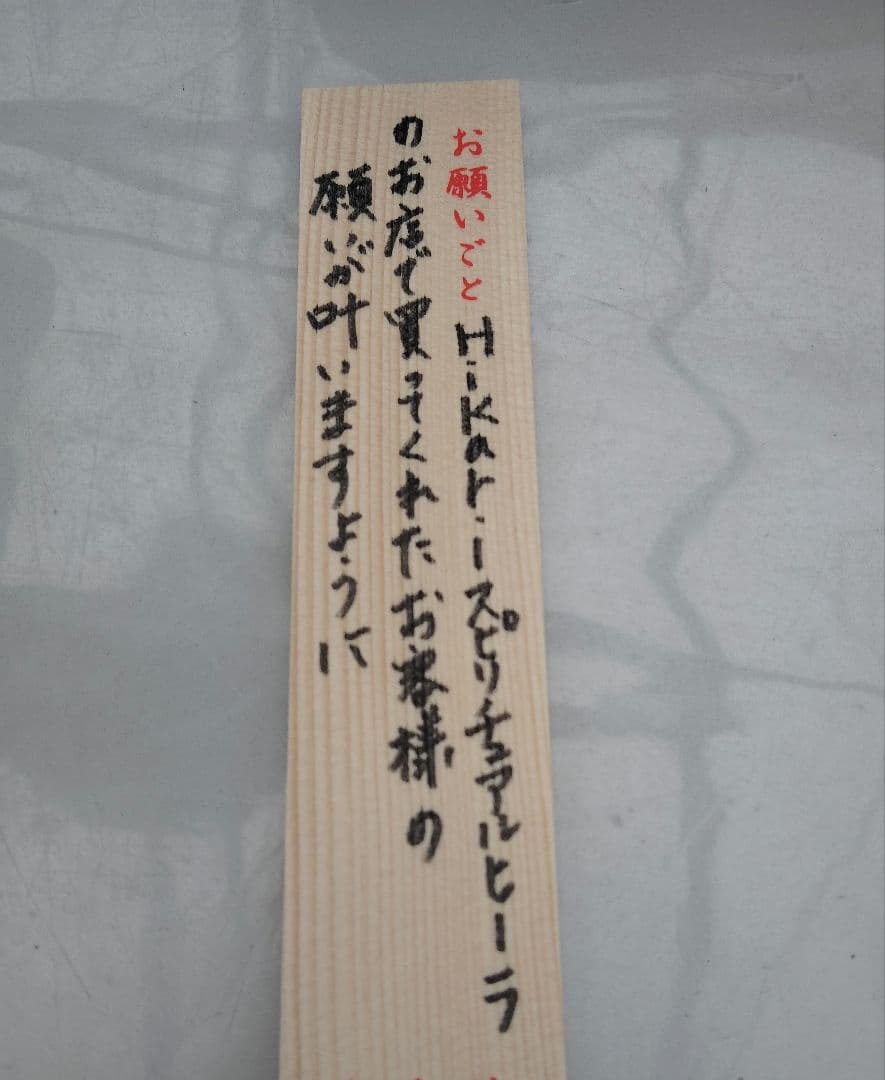 お願いごと Hikari-スピリチュアルヒーラ
のお店で買ってくれたお客様の
願いが叶いますように